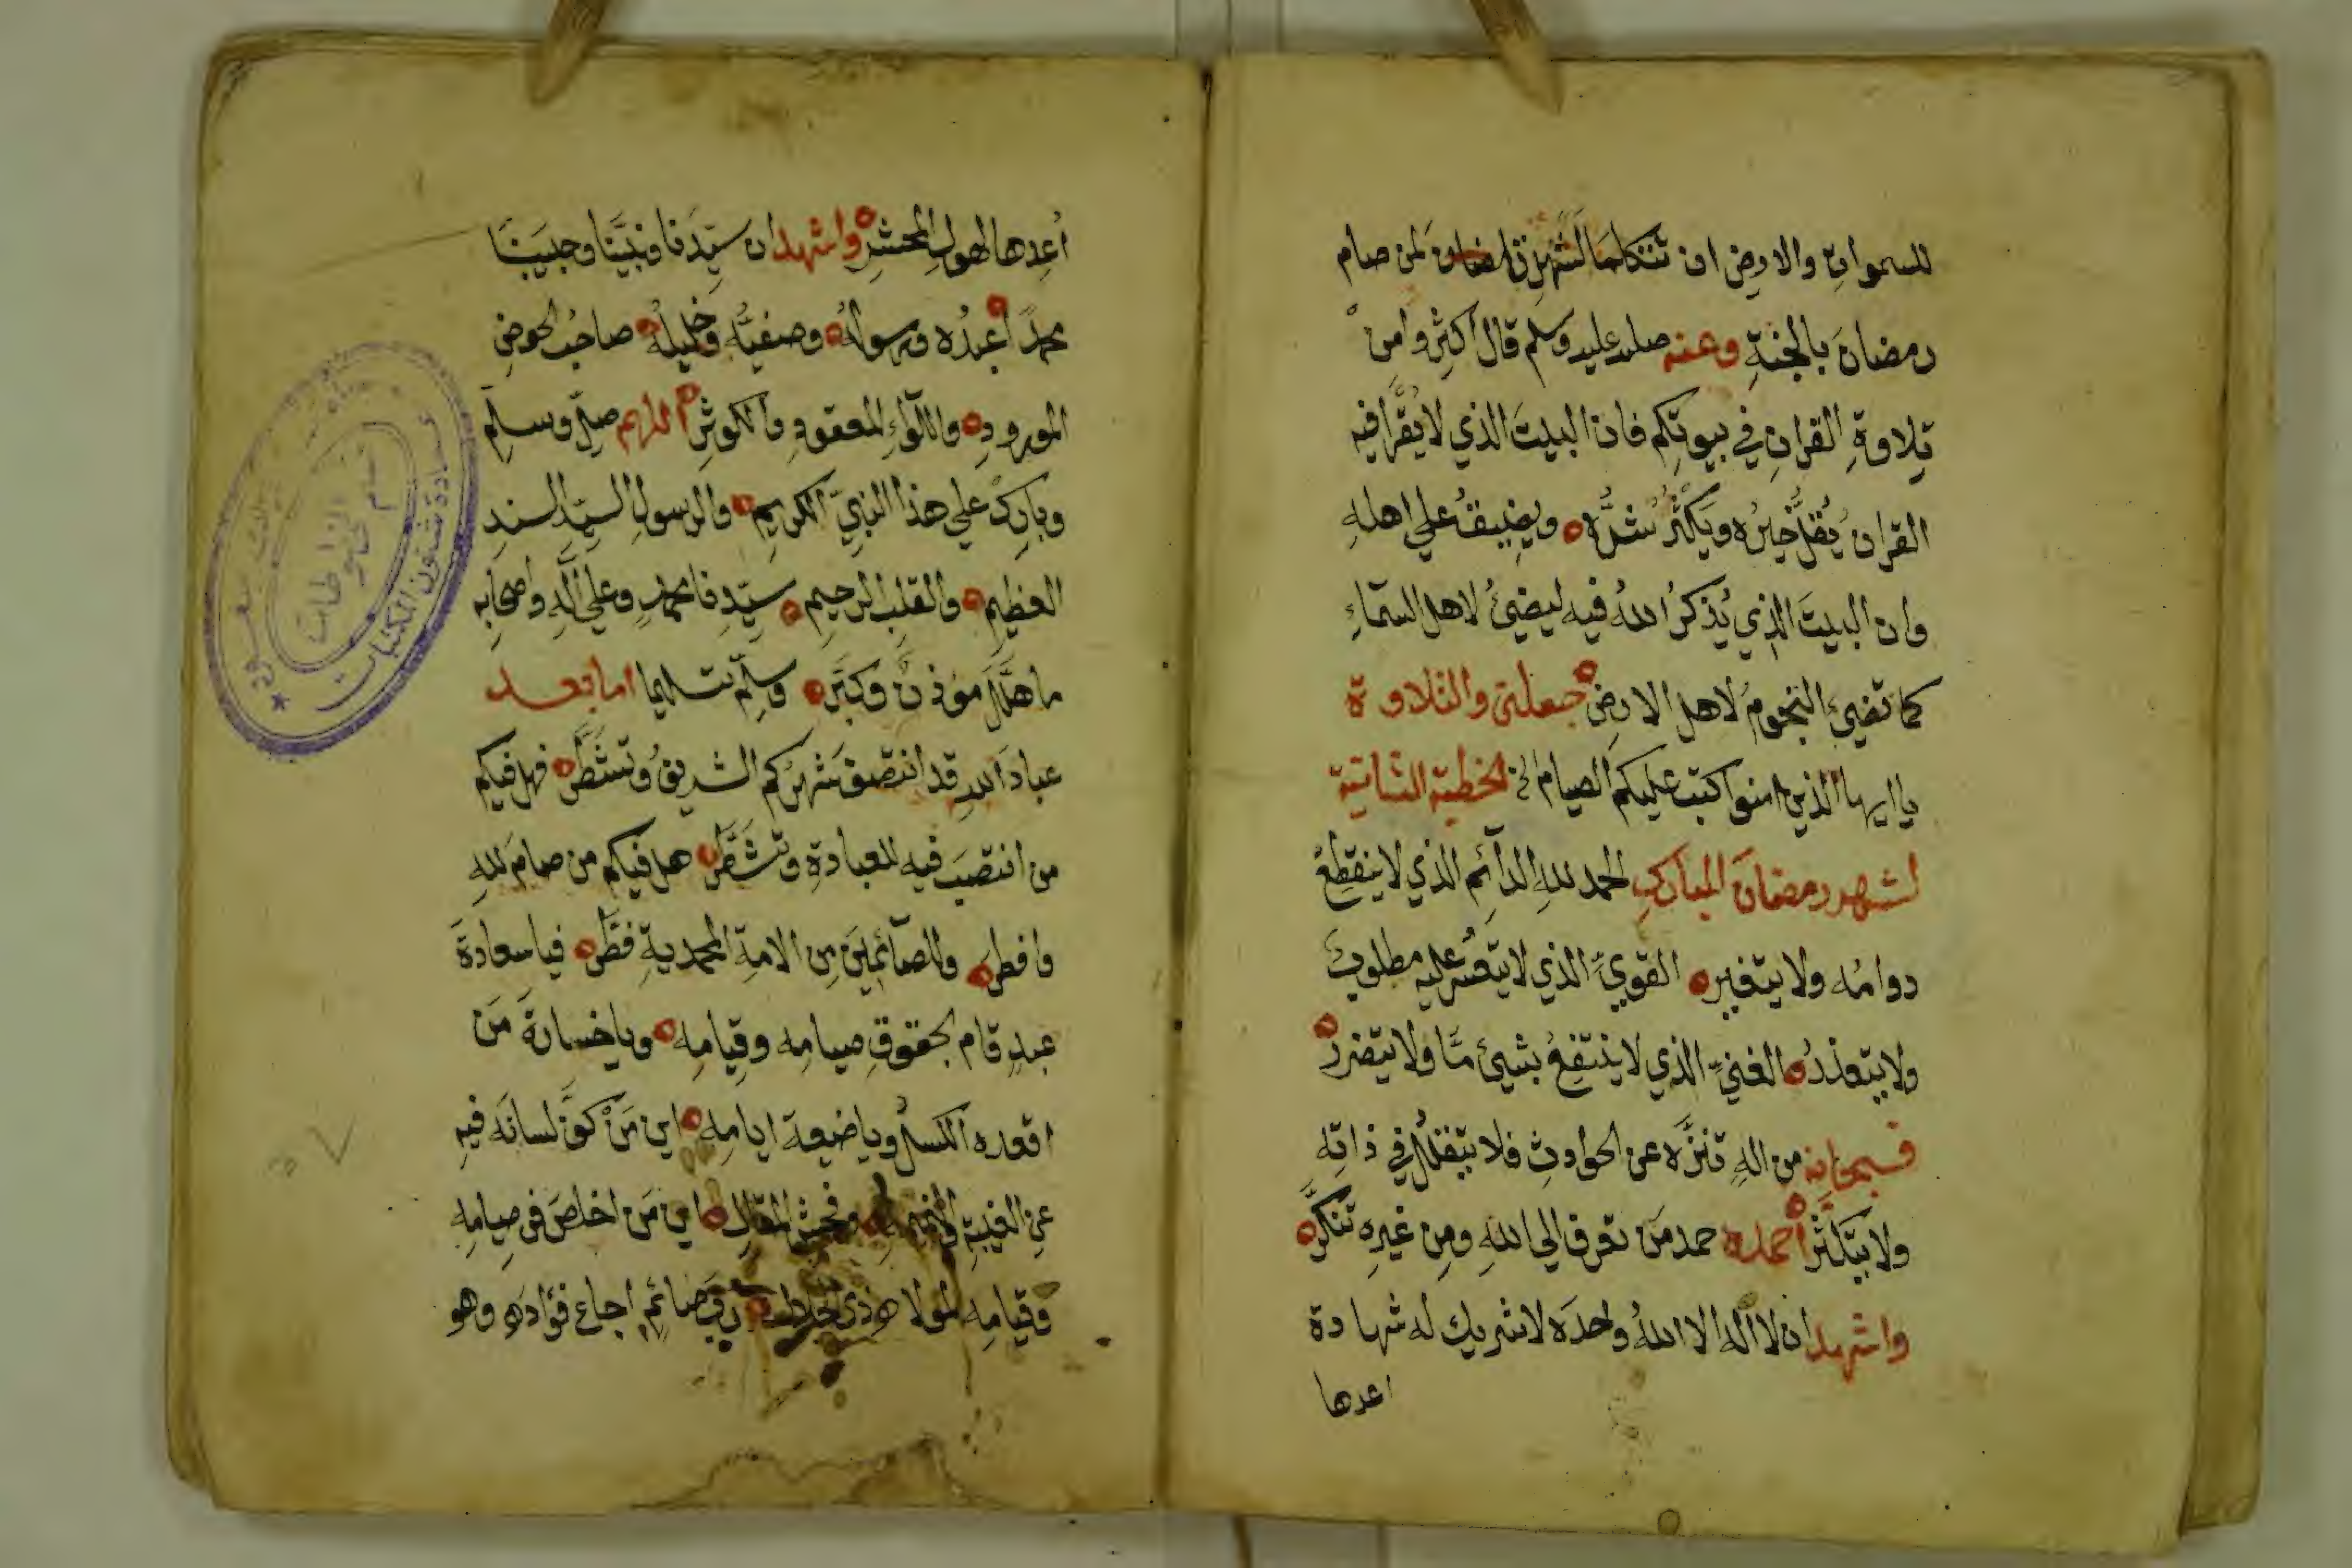 للسموات والارض ان تتكلما لشهدن لمن صام
رمضانَ بالجنةِ وعنه صلى الله عليه وسلم قال اكثِرُوا منْ
تلاوةِ القرانِ في بيوتكم فان البيتَ الذي لا يُقرَا فيه
القران يُقلُّ خيرُه ويكثُرُ شرُّه ويضيقُ علي اهلهِ
وان البيتَ الذي يُذكرُ اللهُ فيه ليضيئُ لاهل السمآءِ
كما تضيئ النجومُ لاهل الارضِ جعلنى والتلاوة
يا ايها الذين امنوا كتب عليكم الصيام الخ الخطبة الثانية
لشهر رمضانَ المباركِ الحمد للهِ الدآئمِ الذي لا ينقطِعُ
دوامُه ولا يتغير القويِّ الذي لا يتعسر عليه مطلوبٌ
ولا يتعذرُ الغنيِّ الذي لا ينتفِعُ بشيئ مّا ولا يتضررُ
فسبحانه من الهٍ تنزَّه عن الحوادثِ فلا يتقلّلُ في ذاتِه
ولا يتكثَّرُ احمده حمد مَن تعرف الي اللهِ ومِن غيرِه تنكَّر
واشهد ان لا اله الا اللهُ وحدَه لا شريك له شهادة
اعدها
اُعِدها لهولِ المحشرِ واشهد ان سيّدَنا ونبيَّنا وحبيبَنا
محمدًا عبدُه ورسولهُ وصفيُّه وخليلُهُ صاحبُ الحوضِ
المورودِ واللوآءِ المعقودِ والكوثرِ اللهم صلِّ وسلِّم
وبارِكْ علي هذا النبيّ الكريمِ والرسولِ السيّدِ السندِ
العظيمِ والقلبِ الرحيمِ سيّدِنا محمدٍ وعلي آلهِ واصحابِه
ما هلَّلَ موذنٌ وكبَّر وسلِّم تسليما اما بعد
عبادَ اللهِ قد انتصف شهرُكم الشريفُ وتشطَّر فهل فيكم
من انتصَبَ فيه للعبادةِ وتشمَّر هل فيكم من صامَ للهِ
وافطر وللصآئمينَ مِن الامةِ المحمديةِ فطَّر فيا سعادةَ
عبدٍ قام بحقوقِ صيامِه وقيامِه ويا خسارةَ مَن
اقعده الكسلُ ويا ضيعةَ ايامِه اين مَنْ كفَّ لسانَه فيهِ
عنِ الغيبةِ والنميمةِ وفحش المقالِ اين مَن اخلصَ في صيامِه
وقيامِه لمولاه ذي الجلالِ صائمٍ اجاع فؤادَه وهو
عمادة شئون المكتبات
قسم المخطوطات